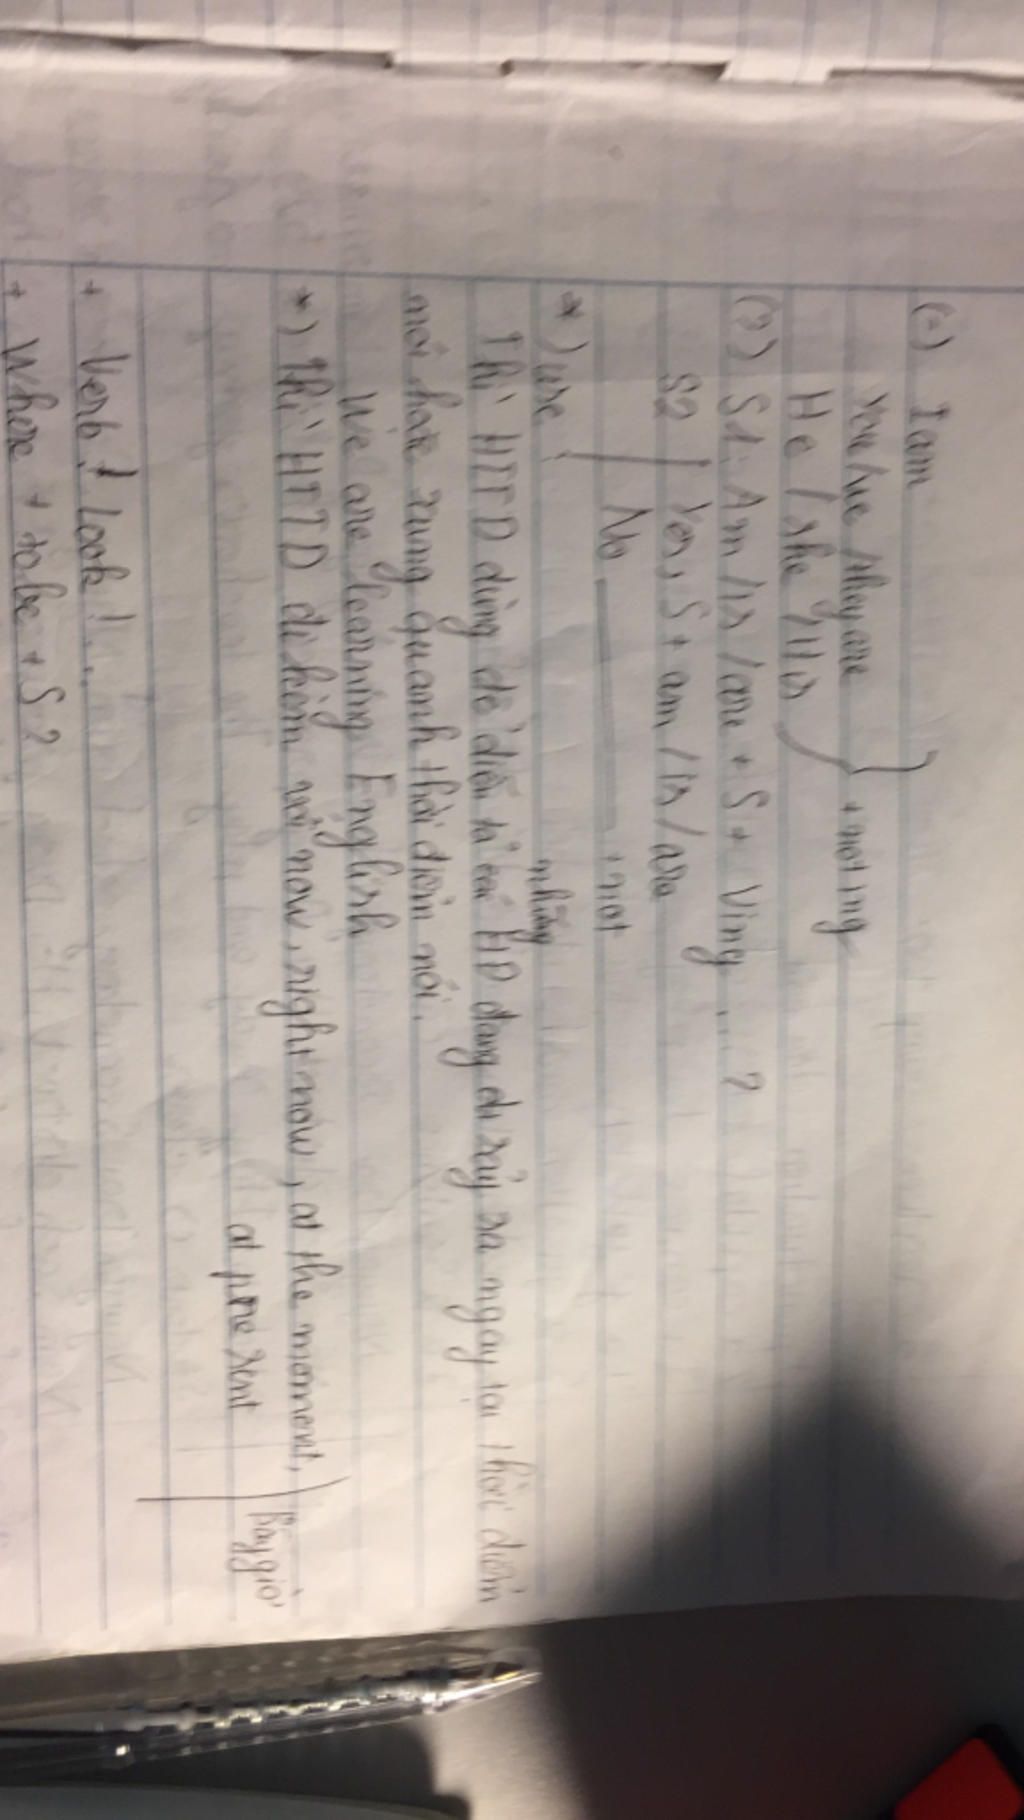 (-) I am
You/we/they are } + not ing
He/she/it is
(?) S1: Am/is/are + S + Ving...?
S2 Yes, S + am/is/are
No + not
*) use:
những
Thì HTTD dùng để diễn tả các HD đang xảy ra ngay tại thời điểm
nói hoặc xung quanh thời điểm nói.
We are learning English
*) Thì HTTD đi kèm với now, right now, at the moment, } Bây giờ
at present
+ Verb! Look!...
+ Where + tobe + S?